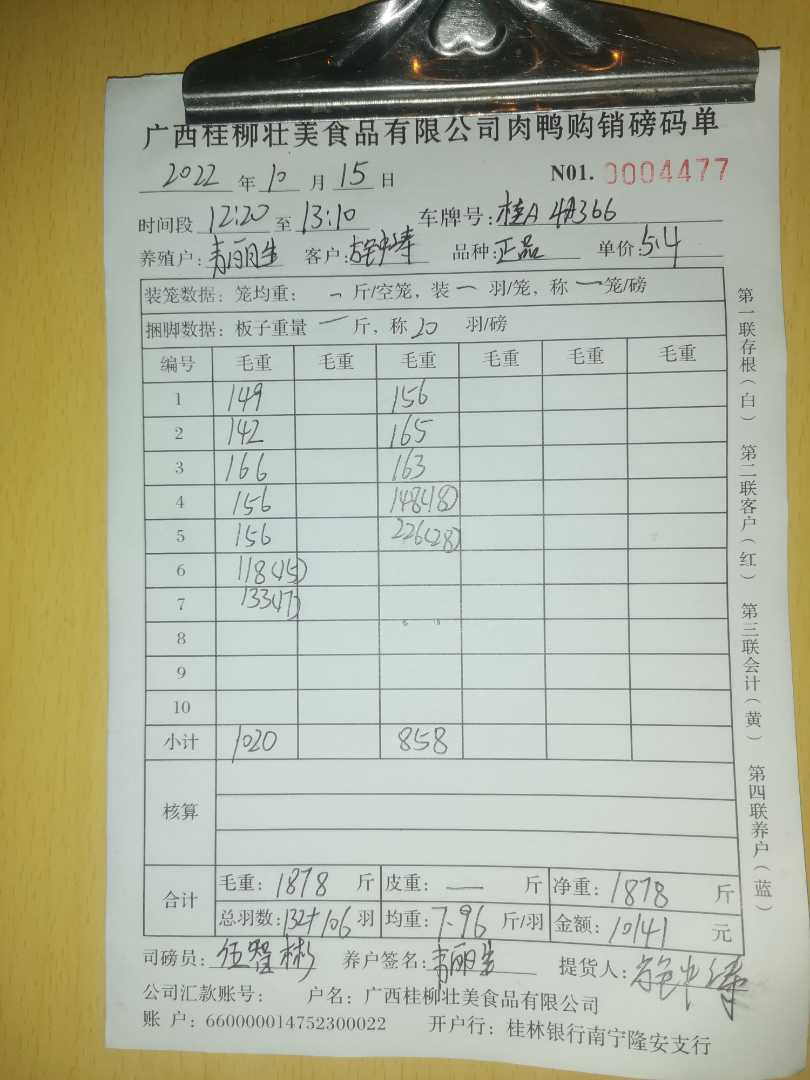 广西桂柳壮美食品有限公司肉鸭购销磅码单
2022 年 10 月 15 日 N01. 0004477
时间段 12:20 至 13:10 车牌号: 桂A
养殖户: 客户: 品种: 正品 单价: 5.4
装笼数据: 笼均重: 一 斤/空笼, 装 一 羽/笼, 称 一 笼/磅
捆脚数据: 板子重量 一 斤, 称 20 羽/磅
编号 毛重 毛重 毛重 毛重 毛重 毛重
1 149 156
2 142 165
3 166 163
4 156 148(18)
5 156 226(28)
6 118(15)
7 133(17)
8
9
10
小计 1020 858
核算
合计 毛重: 1878 斤 皮重: — 斤 净重: 1878 斤
总羽数: 132+106 羽 均重: 7.96 斤/羽 金额: 10141 元
司磅员: 养户签名: 提货人:
公司汇款账号: 户名: 广西桂柳壮美食品有限公司
账 户: 660000014752300022 开户行: 桂林银行南宁隆安支行
第一联存根(白) 第二联客户(红) 第三联会计(黄) 第四联养户(蓝)